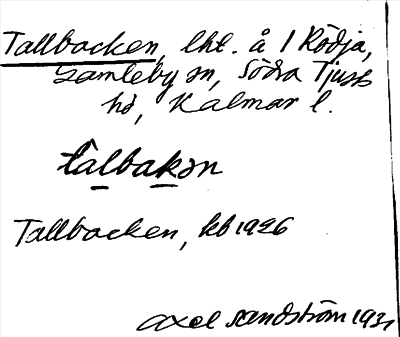 Tallbacken, lht. å 1 Rödja,
Gamleby sn, Södra Tjust
hd, Kalmar l.
talbakən
Tallbacken, kb 1926
Axel Sandström 1931